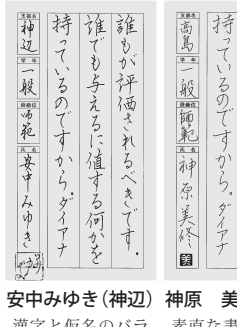 誰もが評価されるべきです。
誰でも与えるに値する何かを
持っているのですから。ダイアナ
支部名 神辺
学年 一般
段級位 師範
氏名 安中みゆき
持っているのですから。ダイアナ
支部名 高島
学年 一般
段級位 師範
氏名 神原美
美
安中みゆき(神辺)
神原 美
漢字と仮名のバラ
素直な書